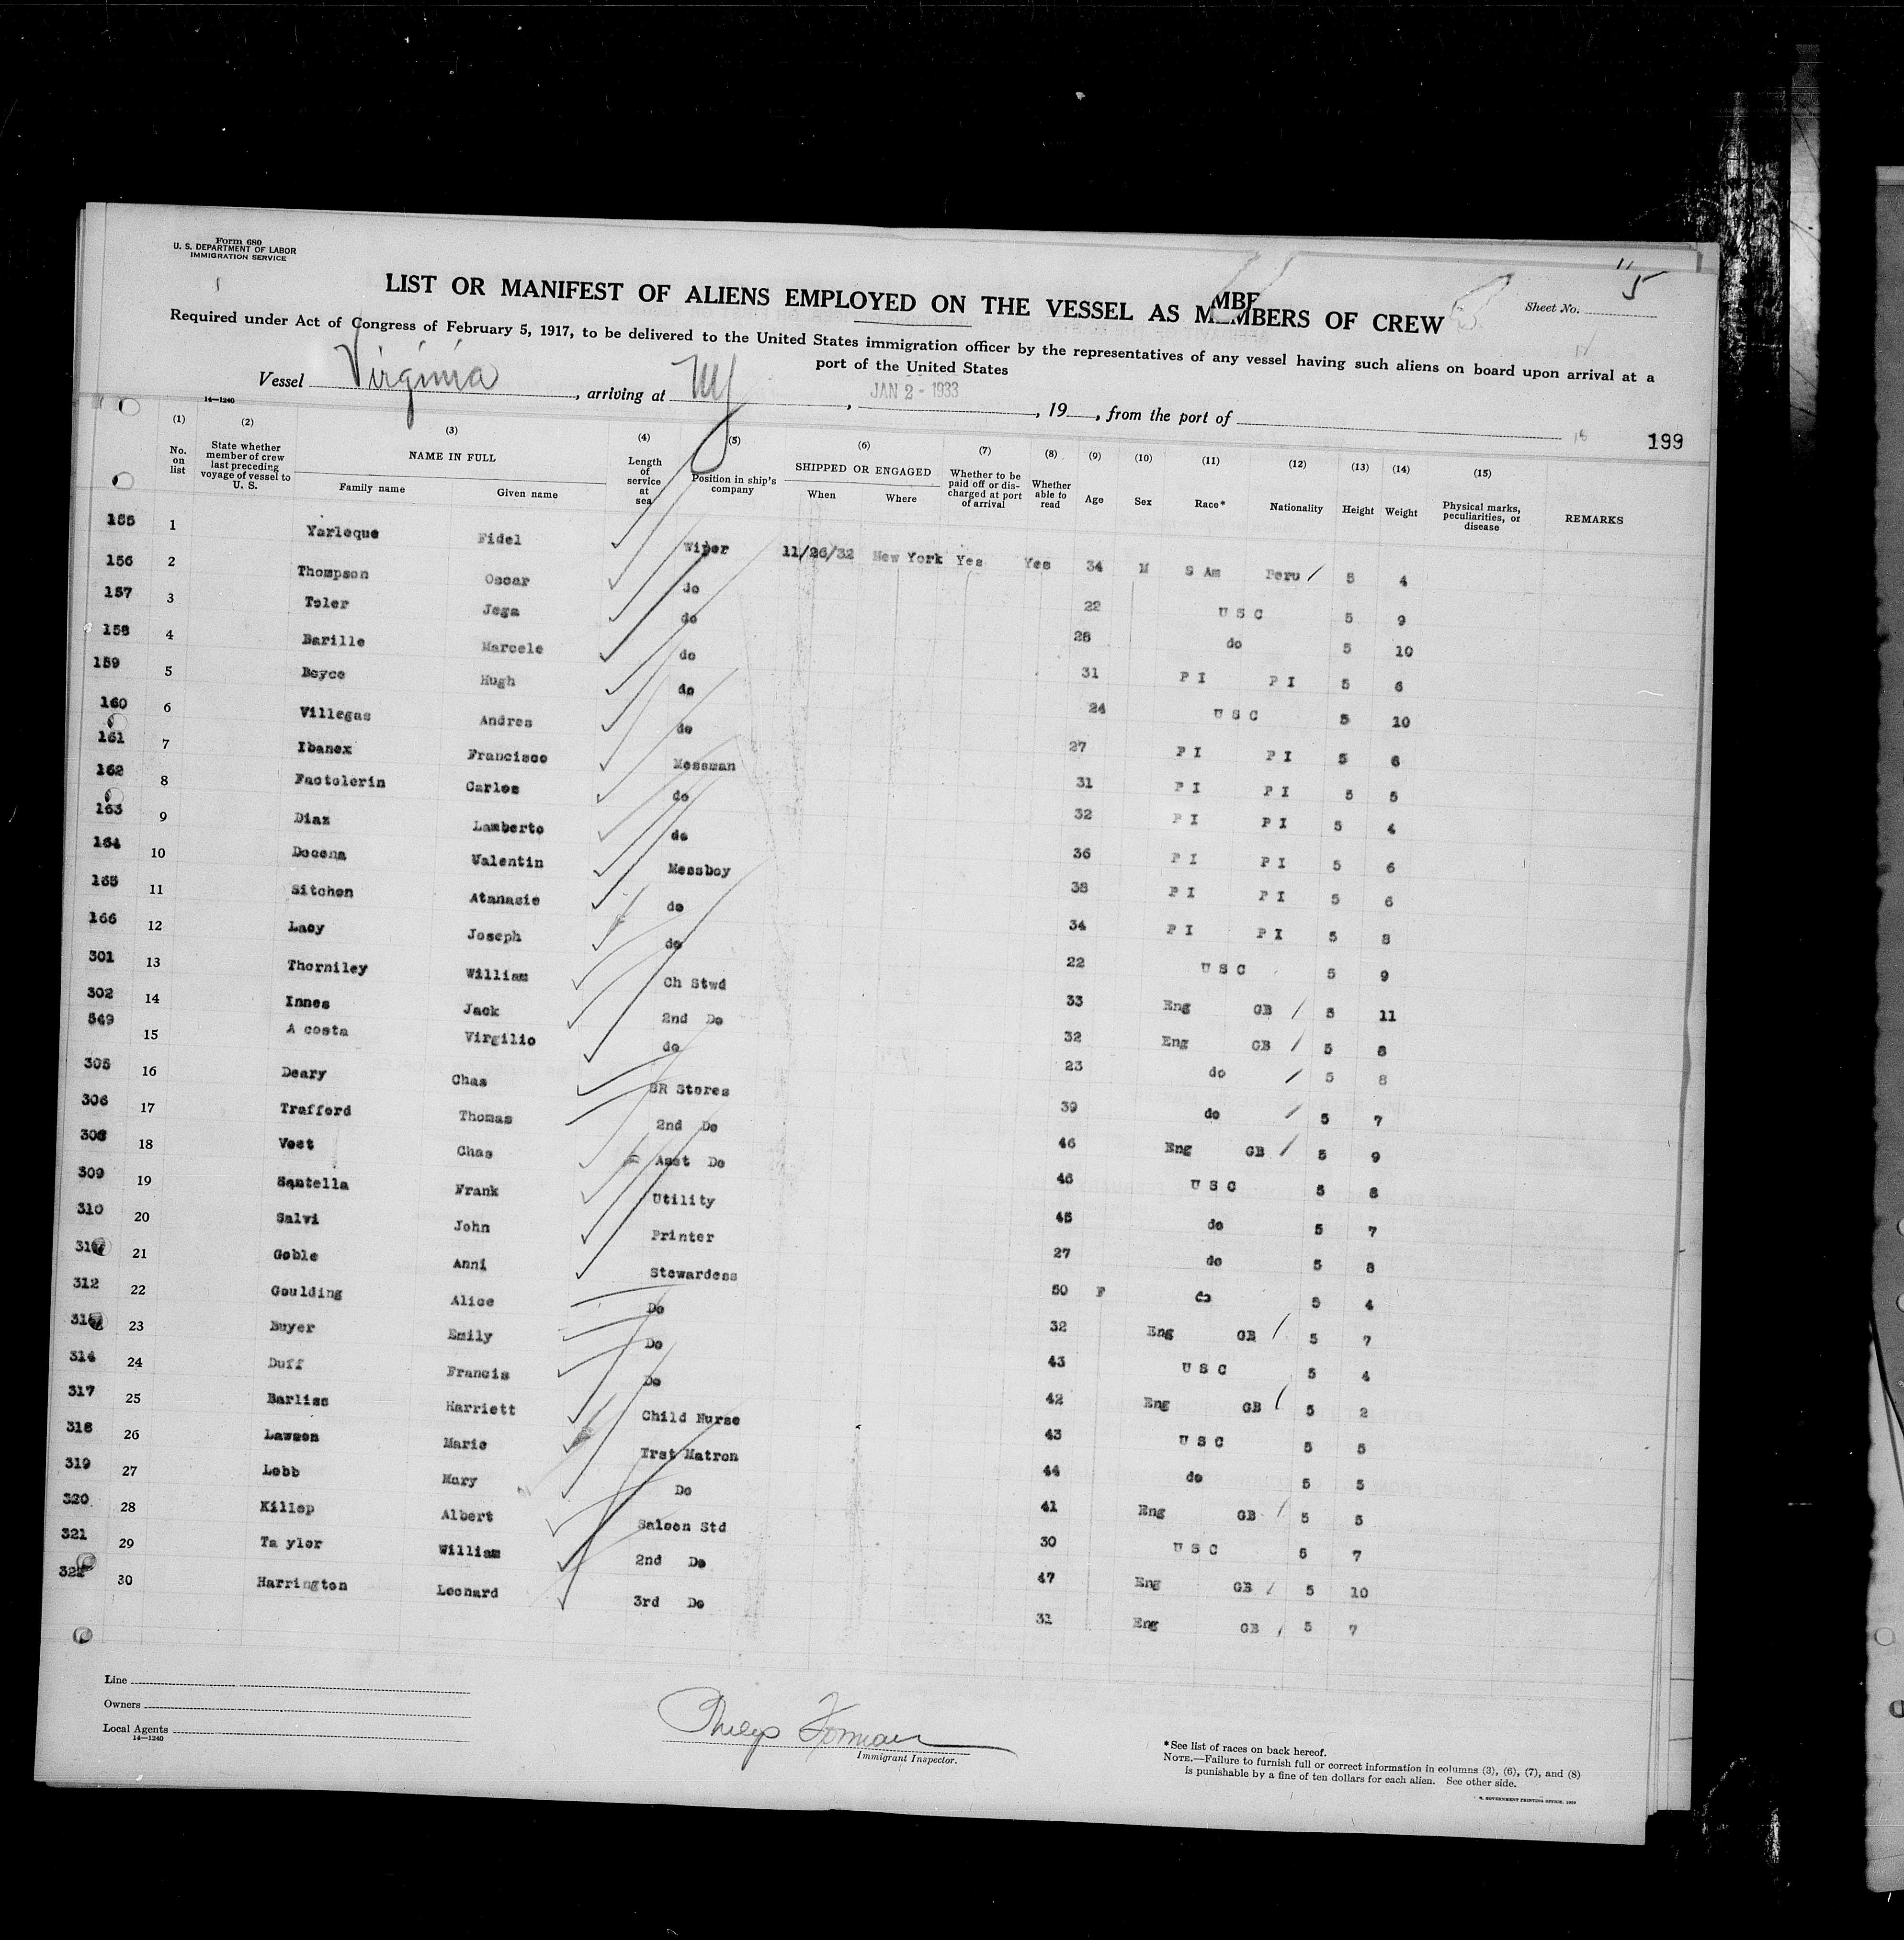 Form 680
U. S. DEPARTMENT OF LABOR
IMMIGRATION SERVICE
LIST OR MANIFEST OF ALIENS EMPLOYED ON THE VESSEL AS MEMBERS OF CREW
MBE
Sheet No. 5
Required under Act of Congress of February 5, 1917, to be delivered to the United States immigration officer by the representatives of any vessel having such aliens on board upon arrival at a
port of the United States
Vessel Virginia, arriving at NY, JAN 2 - 1933, 19, from the port of
14—1240
199
(1) No. on list
(2) State whether member of crew last preceding voyage of vessel to U. S.
(3) NAME IN FULL Family name Given name
(4) Length of service at sea
(5) Position in ship's company
(6) SHIPPED OR ENGAGED When Where
(7) Whether to be paid off or discharged at port of arrival
(8) Whether able to read
(9) Age
(10) Sex
(11) Race*
(12) Nationality
(13) Height
(14) Weight
(15) Physical marks, peculiarities, or disease
REMARKS
155 1 Yarleque Fidel Wiper 11/26/32 New York Yes Yes 34 M S Am Peru 5 4
156 2 Thompson Oscar do 22 U S C 5 9
157 3 Toler Jega do 28 do 5 10
158 4 Barille Marcele do 31 P I P I 5 6
159 5 Boyce Hugh do 24 U S C 5 10
160 6 Villegas Andres do 27 P I P I 5 6
161 7 Ibanex Francisco Messman 31 P I P I 5 5
162 8 Factolerin Carlos do 32 P I P I 5 4
163 9 Diaz Lamberto do 36 P I P I 5 6
164 10 Docena Valentin Messboy 38 P I P I 5 6
165 11 Sitchon Atanasie do 34 P I P I 5 8
166 12 Lacy Joseph do 22 U S C 5 9
301 13 Thorniley William Ch Stwd 33 Eng GB 5 11
302 14 Innes Jack 2nd Do 32 Eng GB 5 8
549 15 A costa Virgilio do 23 do 5 8
305 16 Deary Chas SR Stores 39 do 5 7
306 17 Trafford Thomas 2nd Do 46 Eng GB 5 9
308 18 Vost Chas Asst Do 46 U S C 5 8
309 19 Santella Frank Utility 45 do 5 7
310 20 Salvi John Printer 27 do 5 8
21 Goble Anni Stewardess 50 F do 5 4
312 22 Goulding Alice Do 32 Eng GB 5 7
23 Buyer Emily Do 43 U S C 5 4
314 24 Duff Francis Do 42 Eng GB 5 2
317 25 Barliss Harriett Child Nurse 43 U S C 5 5
318 26 Lawson Marie Trst Matron 44 do 5 5
319 27 Lobb Mary Do 41 Eng GB 5 5
320 28 Killop Albert Saloon Std 30 U S C 5 7
321 29 Ta ylor William 2nd Do 47 Eng GB 5 10
322 30 Harrington Leonard 3rd Do 31 Eng GB 5 7
Line
Owners
Local Agents
14—1240
Philip Forman
Immigrant Inspector.
*See list of races on back hereof.
NOTE.—Failure to furnish full or correct information in columns (3), (6), (7), and (8)
is punishable by a fine of ten dollars for each alien. See other side.
GOVERNMENT PRINTING OFFICE